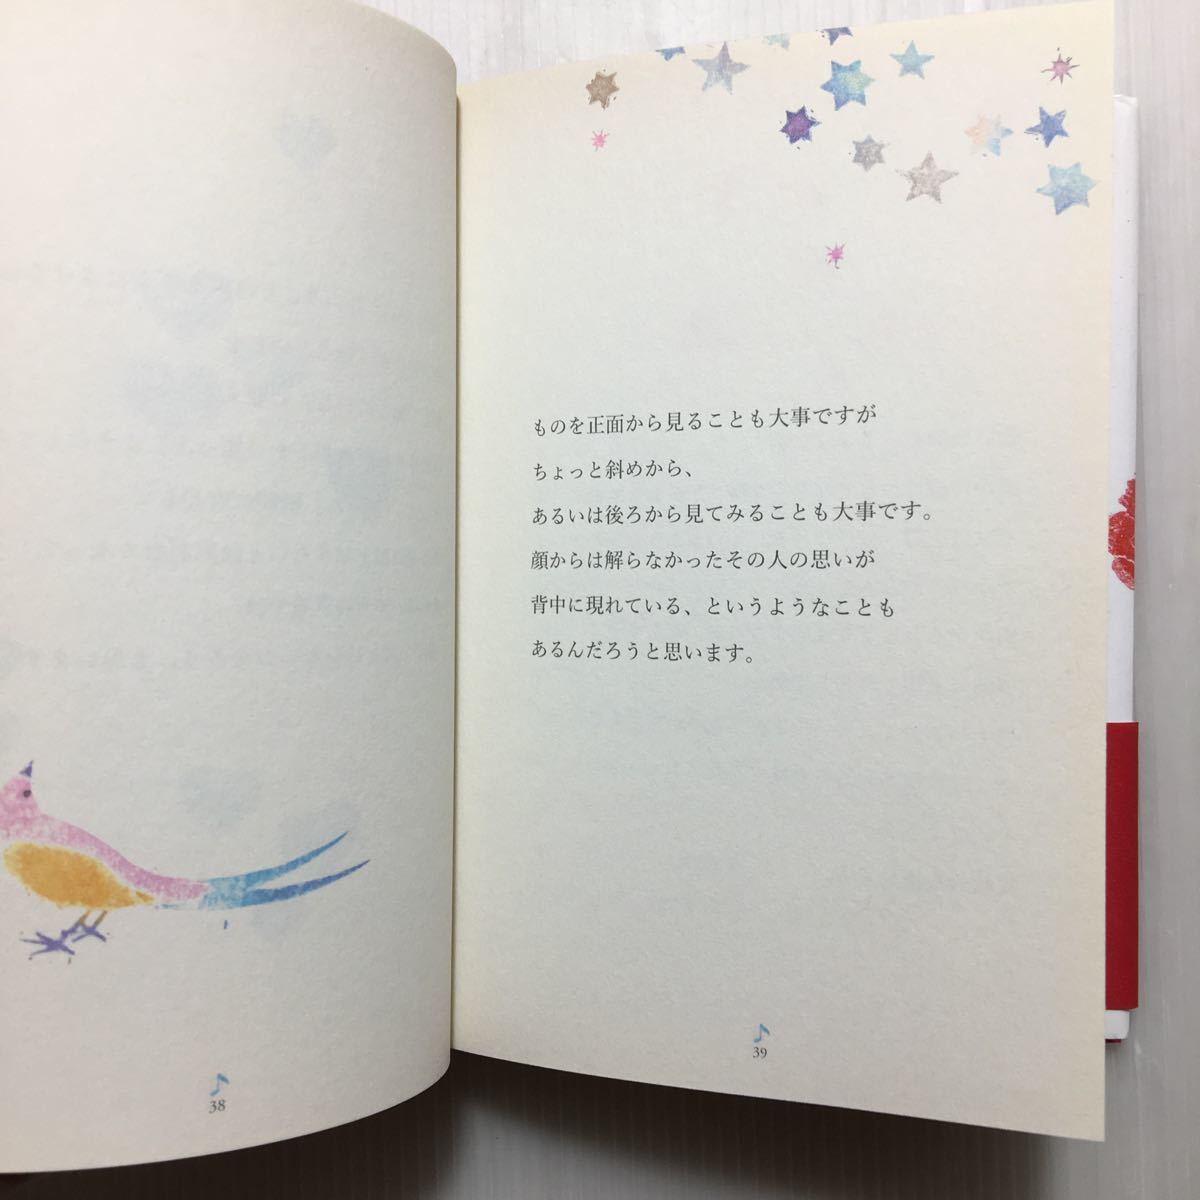 ものを正面から見ることも大事ですが
ちょっと斜めから、
あるいは後ろから見てみることも大事です。
顔からは解らなかったその人の思いが
背中に現れている、というようなことも
あるんだろうと思います。
38
39